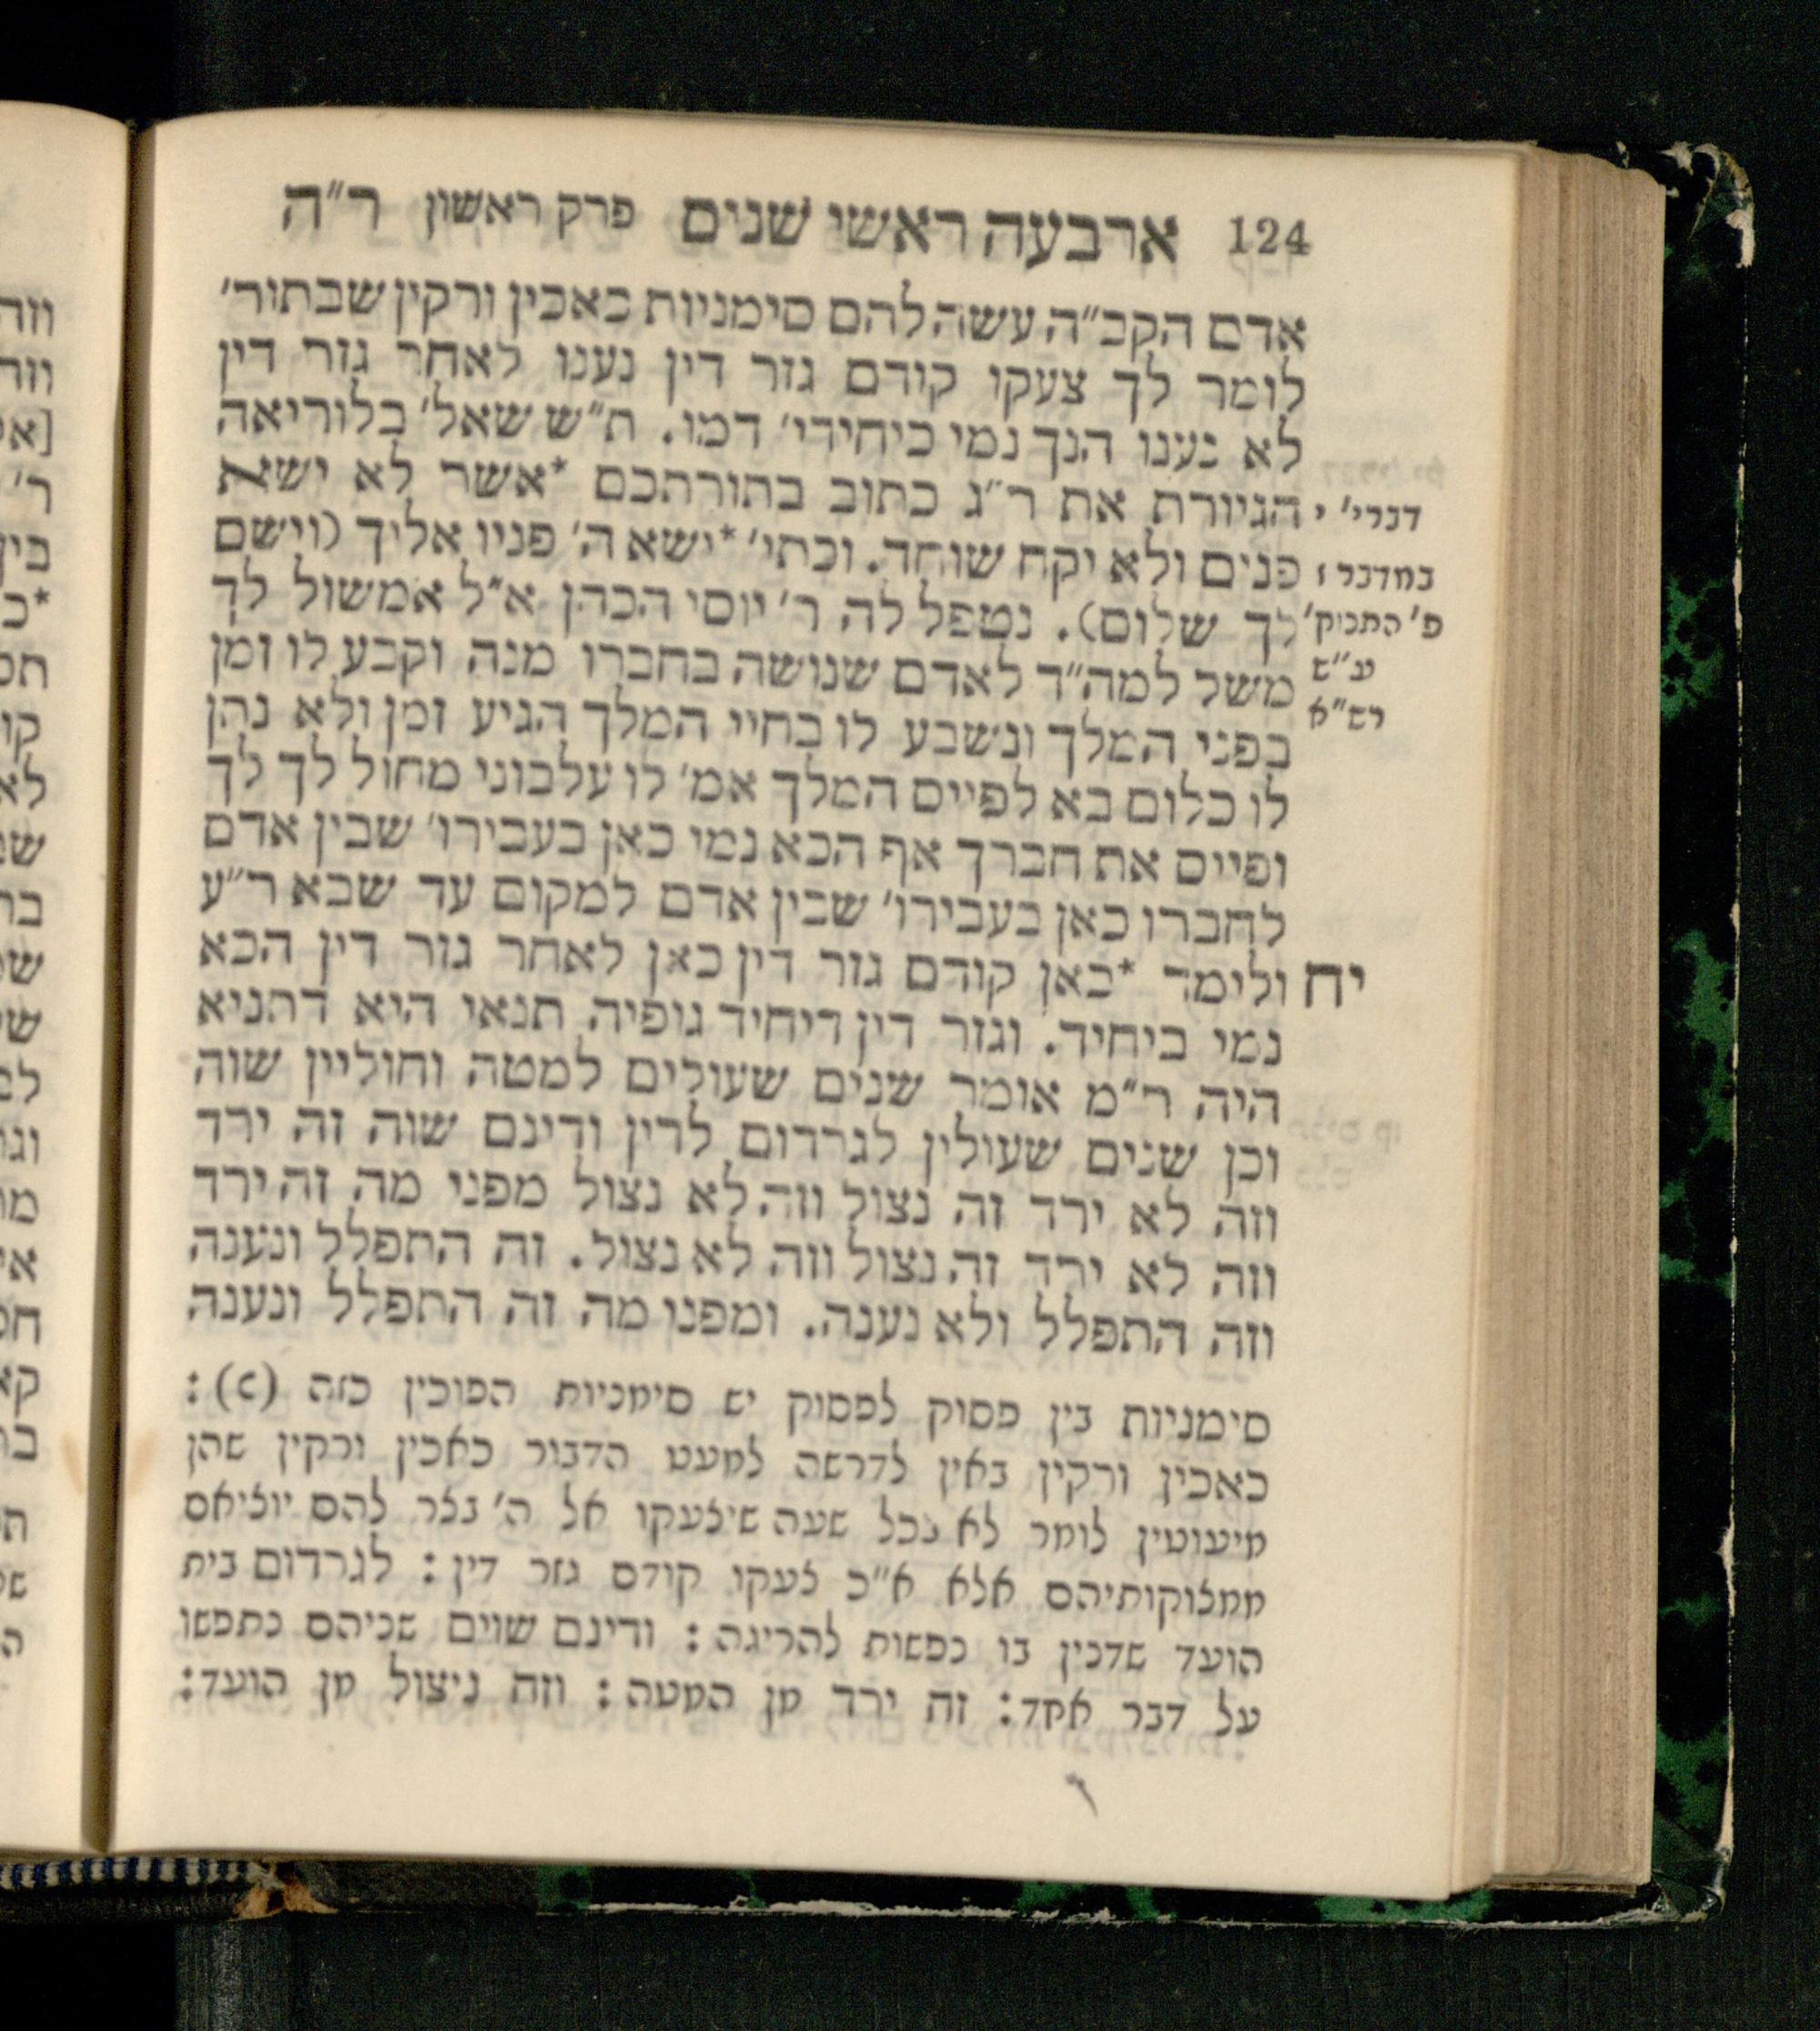 124 ארבעה ראשי שנים פרק ראשון ר״ה
אדם הקב״ה עשה להם סימניות כאכין ורקין שבתור׳
לומר לך צעקו קודם גזר דין נענו לאחר גזר דין
לא נענו הנך נמי כיחידי׳ דמו. ת״ש שאל׳ בלוריאה
דברי׳ י הגיורת את ר״ג כתוב בתורתכם *אשר לא ישא
במדבר ו פנים ולא יקח שוחד. וכתי׳ *ישא ה׳ פניו אליך (וישם
לך שלום). נטפל לה ר׳ יוסי הכהן א״ל אמשול לך
ע״ש משל למה״ד לאדם שנושה בחברו מנה וקבע לו זמן
רש״א בפני המלך ונשבע לו בחיי המלך הגיע זמן ולא נתן
לו כלום בא לפייס המלך אמ׳ לו עלבוני מחול לך לך
ופייס את חברך אף הכא נמי כאן בעבירו׳ שבין אדם
לחברו כאן בעבירו׳ שבין אדם למקום עד שבא ר״ע
יח ולימד *כאן קודם גזר דין כאן לאחר גזר דין הכא
נמי ביחיד. וגזר דין דיחיד גופיה תנאי היא דתניא
היה ר״מ אומר שנים שעולים למטה וחוליין שוה
וכן שנים שעולין לגרדום לדין ודינם שוה זה ירד
וזה לא ירד זה נצול וזה לא נצול מפני מה זה ירד
וזה לא ירד זה נצול וזה לא נצול. זה התפלל ונענה
וזה התפלל ולא נענה. ומפני מה זה התפלל ונענה
סימניות בין פסוק לפסוק יש סימניות הפוכין כזה :
כאכין ורקין באין לדרשה למעט הדבור כאכין ורקין שהן
מיעוטין לומר לא בכל שעה שיצעקו אל ה׳ בצר להם יוציאם
ממצוקותיהם אלא א״כ צעקו קודם גזר דין : לגרדום בית
הועד שדנין בו נפשות להריגה : ודינם שוים שניהם נתפשו
על דבר אחד: זה ירד מן המטה : וזה ניצול מן הועד: